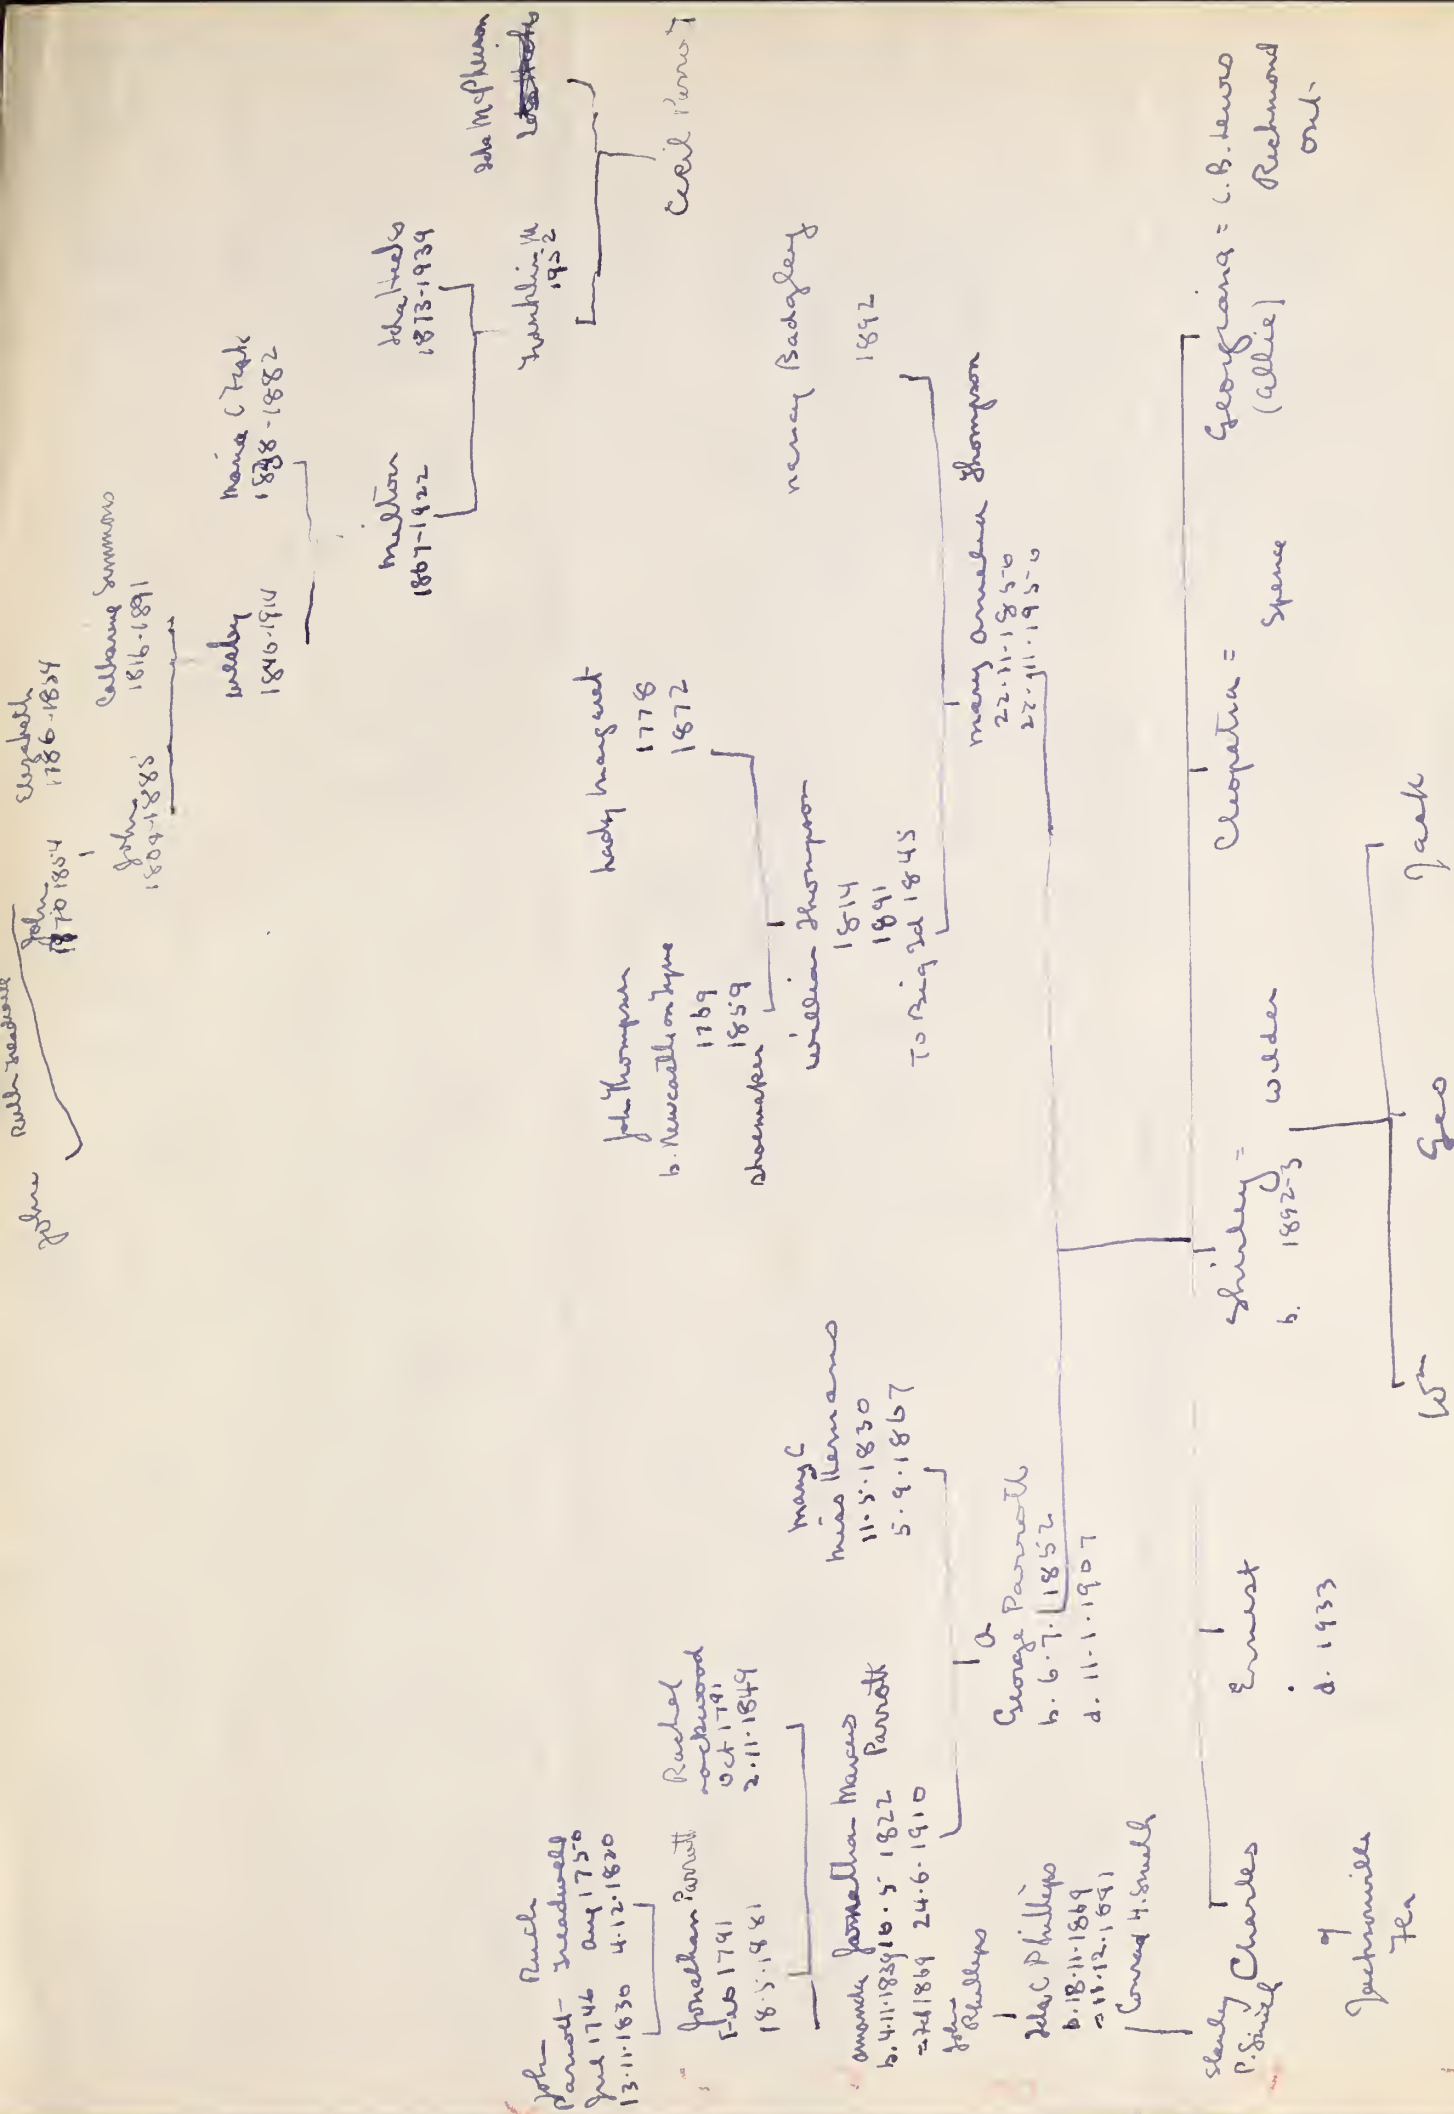 John
Ruth Treadwell
John
1770 1854
Elizabeth
1786-1834
John
1809-1885
Catharine Simmons
1816-1891
Wesley
1840-1914
Maria C
1848-1882
Milton
1867-1922
1873-1939
Franklin M
1952
McPherson
Cecil Parrot
John
Parrott
June 1746
13.11.1830
Ruth
Treadwell
Aug 1750
4.12.1820
Jonathan Parrott
Feb 1791
18.5.1881
Rachel
Lockwood
Oct 1791
2.11.1849
Amanda
b. 4.11.1839
1869
John
Phillips
Jonathan Marcus
Parrott
10.5 1822
24.6.1910
Mary C
Miss Hermans
11.5.1830
5.9.1867
C Phillips
b. 18.11.1869
Conrad H. Smith
Stanley
P. Smith
John Thompson
b. Newcastle on Tyne
1769
1859
Shoemaker
Lady Margaret
1778
1872
William Thompson
1814
1891
To Big Id 1845
Nancy Badgley
1892
George Parrott
b. 6.7.1852
d. 11.1.1907
Mary Amelia Thompson
22.11.1850
22.11.1950
Charles
of
Jacksonville
Ernest
d. 1933
Shirley = Wilder
b. 1892-3
Cleopatra = Spence
Georgiana = C.B. Lewis
(Allie)
Richmond
Ont.
Wm
Geo
Jack